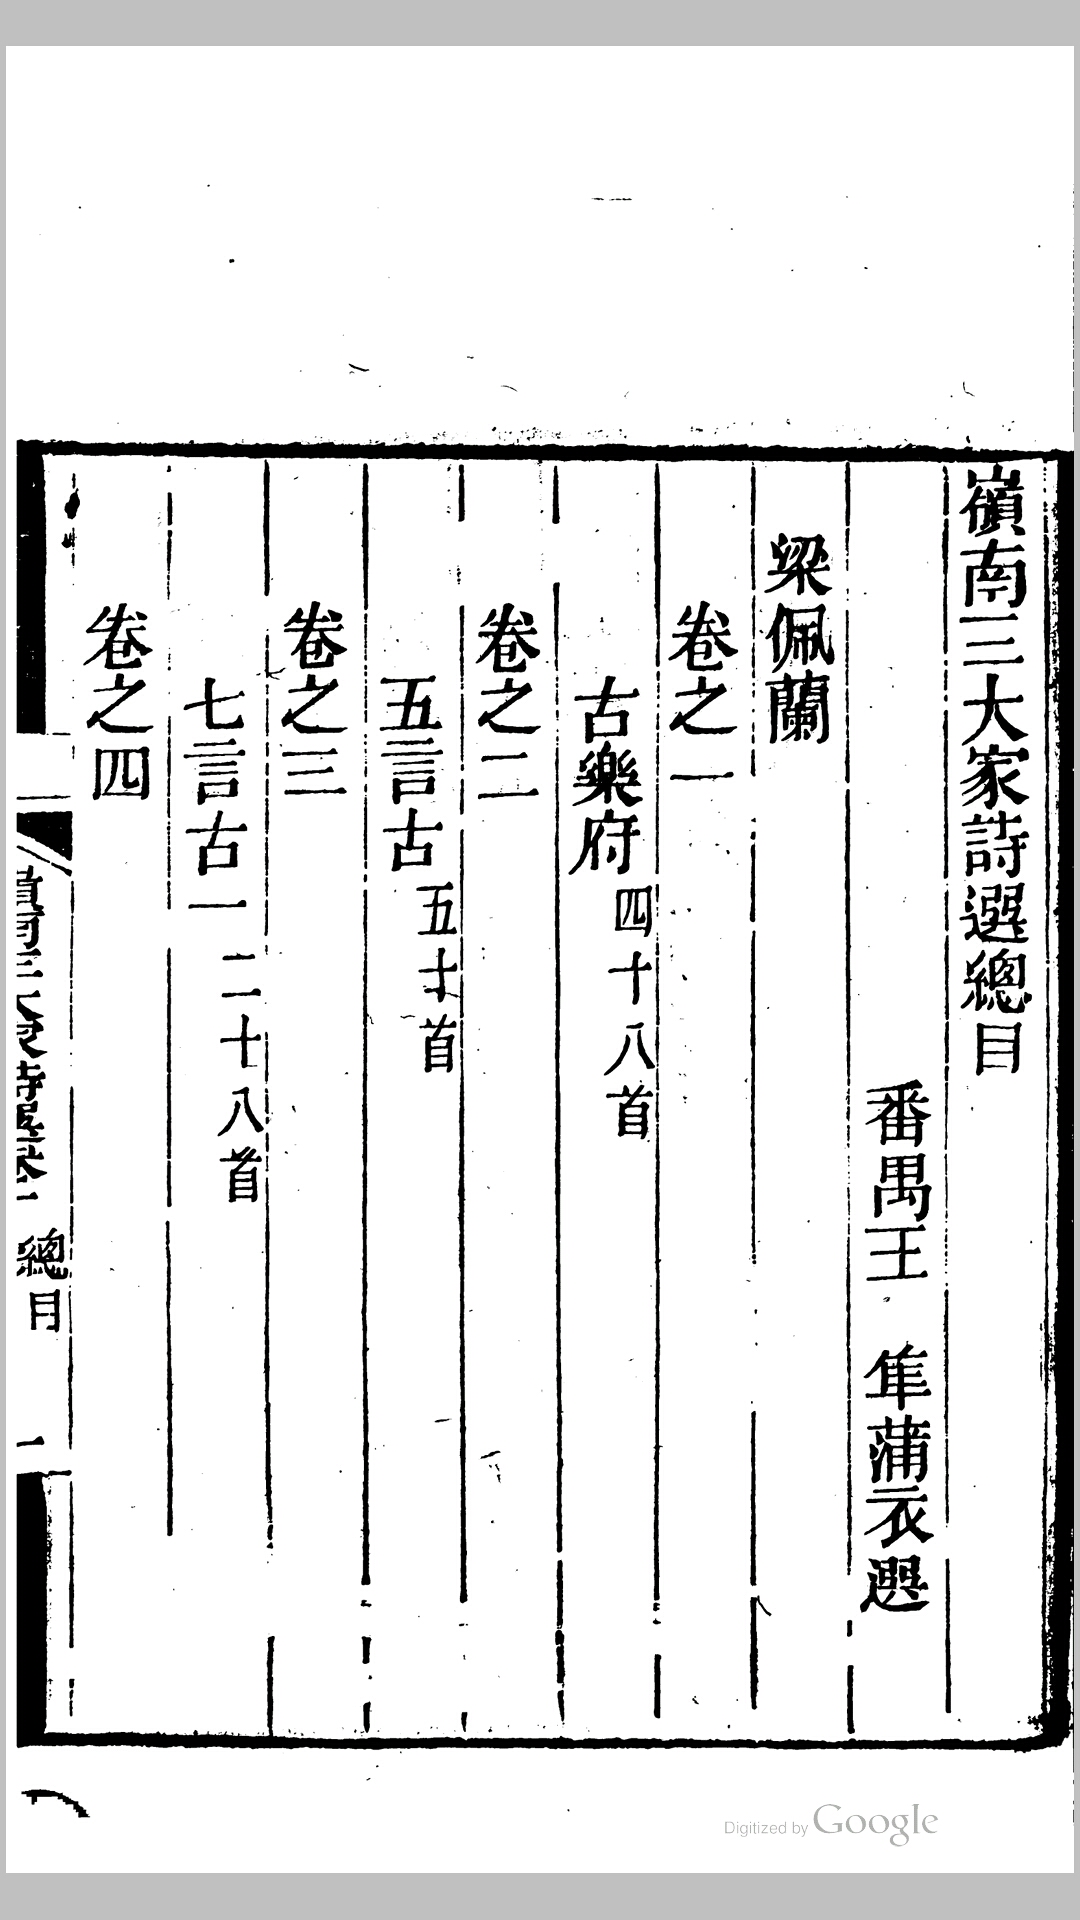 嶺南三大家詩選總目
番禺王 隼蒲衣選
梁佩蘭
卷之一
古樂府 四十八首
卷之二
五言古 五十首
卷之三
七言古一 二十八首
卷之四
總目
一
Digitized by Google